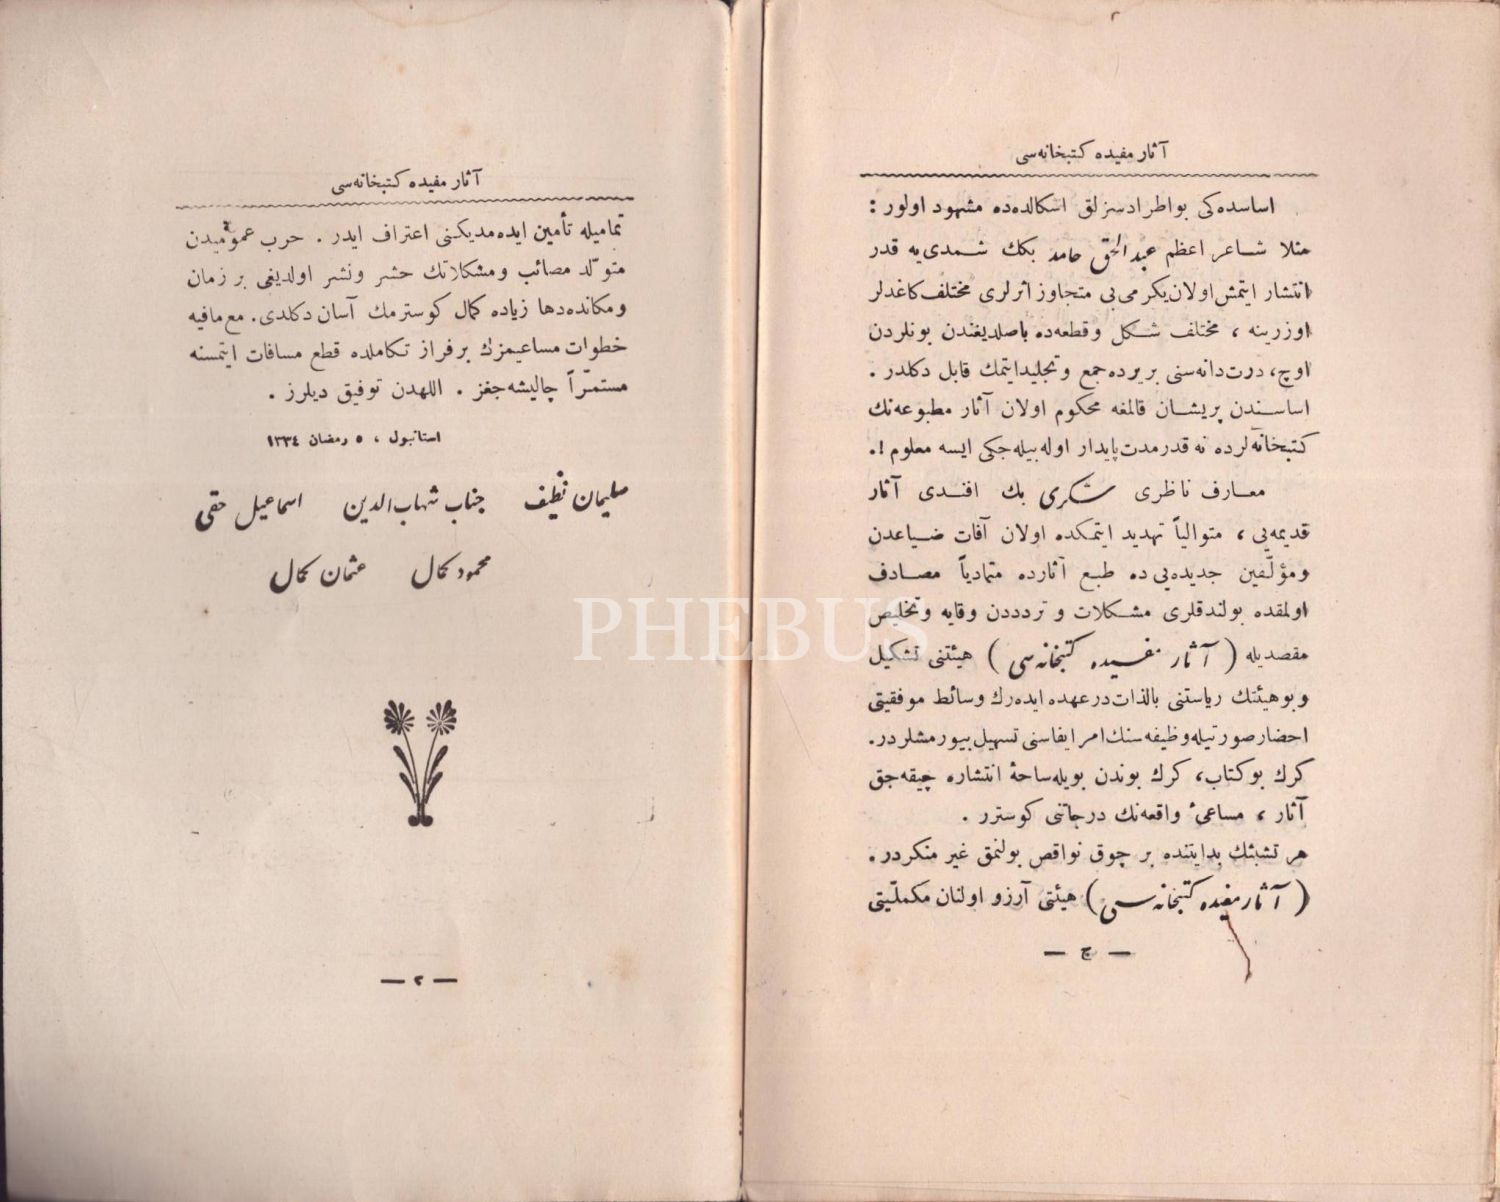 آثار مفيده كتبخانه‌سى
اساسده‌كى بواطرادسزلق اسكالده‌ده مشهود اولور :
مثلا شاعر اعظم عبدالحق حامد بكك شمدى‌يه قدر
انتشار ايتمش اولان يكرمى‌يى متجاوز اثرلرى مختلف كاغدلر
اوزرينه ، مختلف شكل وقطعه‌ده باصلديغندن بونلردن
اوچ، درت دانه‌سنى بر يرده جمع وتجليد ايتمك قابل دكلدر .
اساسندن پريشان قالمغه محكوم اولان آثار مطبوعه‌نك
كتبخانه‌لرده نه قدر مدت پايدار اوله‌بيله‌جكى ايسه معلوم !.
معارف ناظرى شكرى بك افندى آثار
قديمه‌يى ، متوالياً تهديد ايتمكده اولان آفات ضياعدن
ومؤلفين جديده‌يى ده طبع آثارده متمادياً مصادف
اولمقده بولندقلرى مشكلات و تردددن وقايه وتخليص
مقصديله ( آثار مفيده كتبخانه‌سى ) هيئتنى تشكيل
وبوهيئتك رياستنى بالذات درعهده ايده‌رك وسائط موفقيتى
احضار صورتيله وظيفه‌سنك امر ايفاسنى تسهيل بيورمشلردر.
كرك بوكتاب، كرك بوندن بويله ساحهٔ انتشاره چيقه‌جق
آثار ، مساعئ واقعه‌نك درجاتنى كوسترر .
هر تشبثك بدايتنده بر چوق نواقص بولنمق غير منكردر.
( آثار مفيده كتبخانه‌سى ) هيئتى آرزو اولنان مكمليتى
— ج —
آثار مفيده كتبخانه‌سى
تماميله تأمين ايده‌مديكنى اعتراف ايدر . حرب عموميدن
متولّد مصائب ومشكلاتك حشر ونشر اولديغى بر زمان
ومكانده دها زياده كمال كوسترمك آسان دكلدى. مع‌مافيه
خطوات مساعيمزك بر فراز تكاملده قطع مسافات ايتمسنه
مستمرّاً چاليشه‌جغز . اللهدن توفيق ديلرز .
استانبول ، ٥ رمضان ١٣٣٤
سليمان نظيف جناب شهاب‌الدين اسماعيل حقى
محمود كمال عثمان كمال
PHEBUS